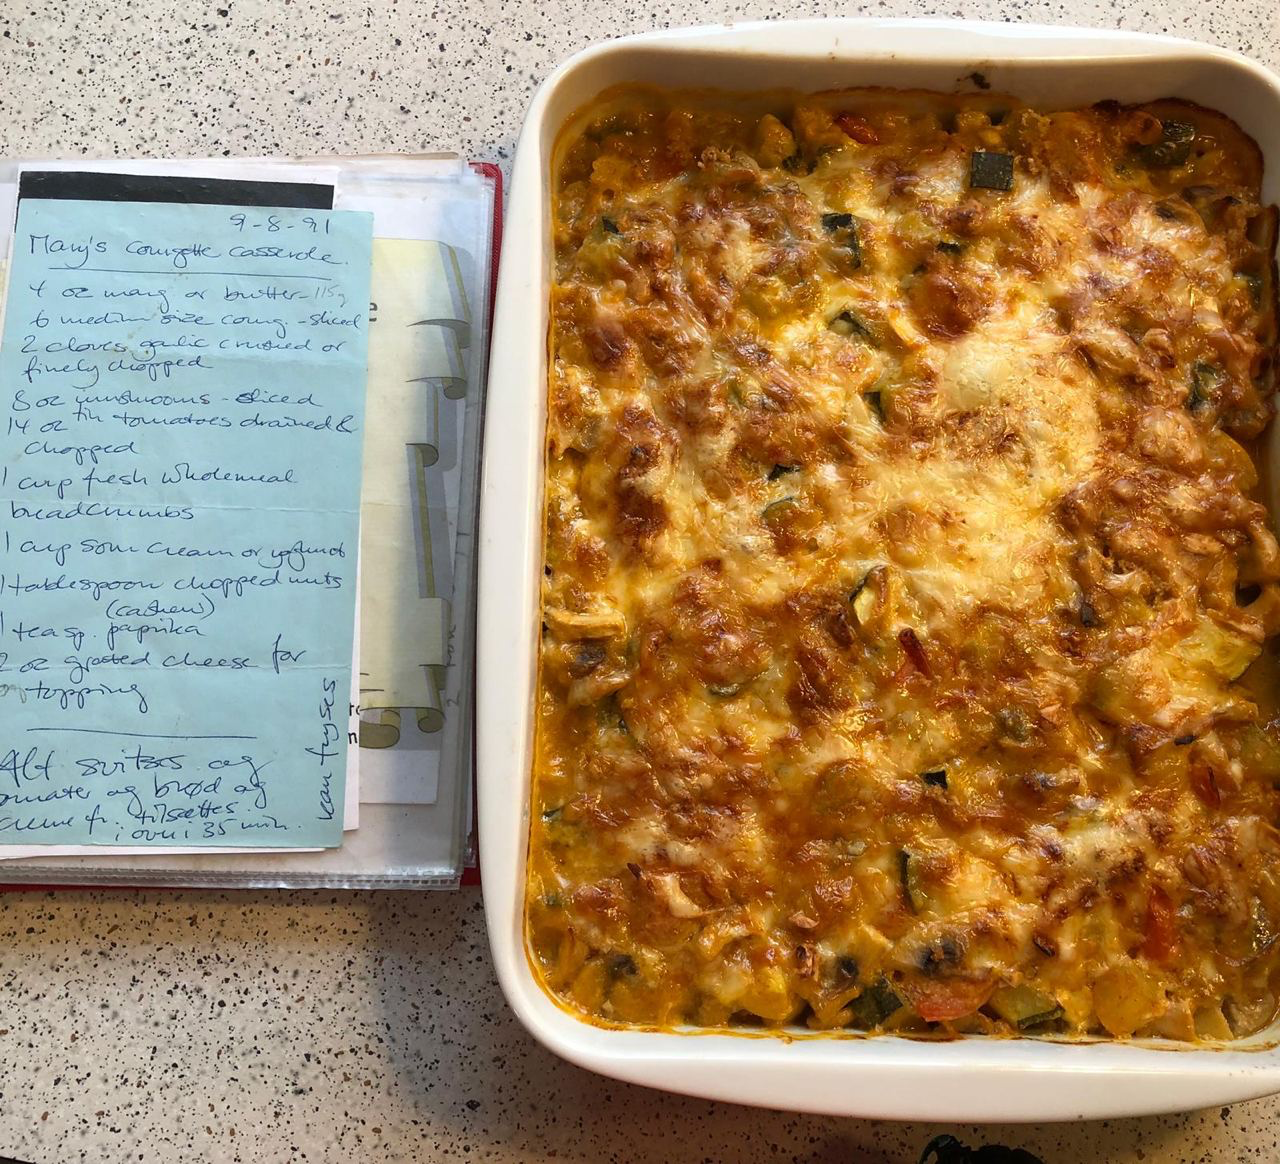 9-8-91
Mary's courgette casserole.
4 oz marg or butter - 115g
6 medium size courg - sliced
2 cloves garlic crushed or
finely chopped
8 oz mushrooms - sliced
14 oz tin tomatoes drained &
chopped
1 cup fresh wholemeal
breadcrumbs
1 cup sour cream or yoghurt
1 tablespoon chopped nuts
(cashew)
1 teasp. paprika
2 oz grated cheese for
topping
Alt svitses og
omater og brød og
creme fr. tilsættes.
i ovn i 35 min.
kan fryses